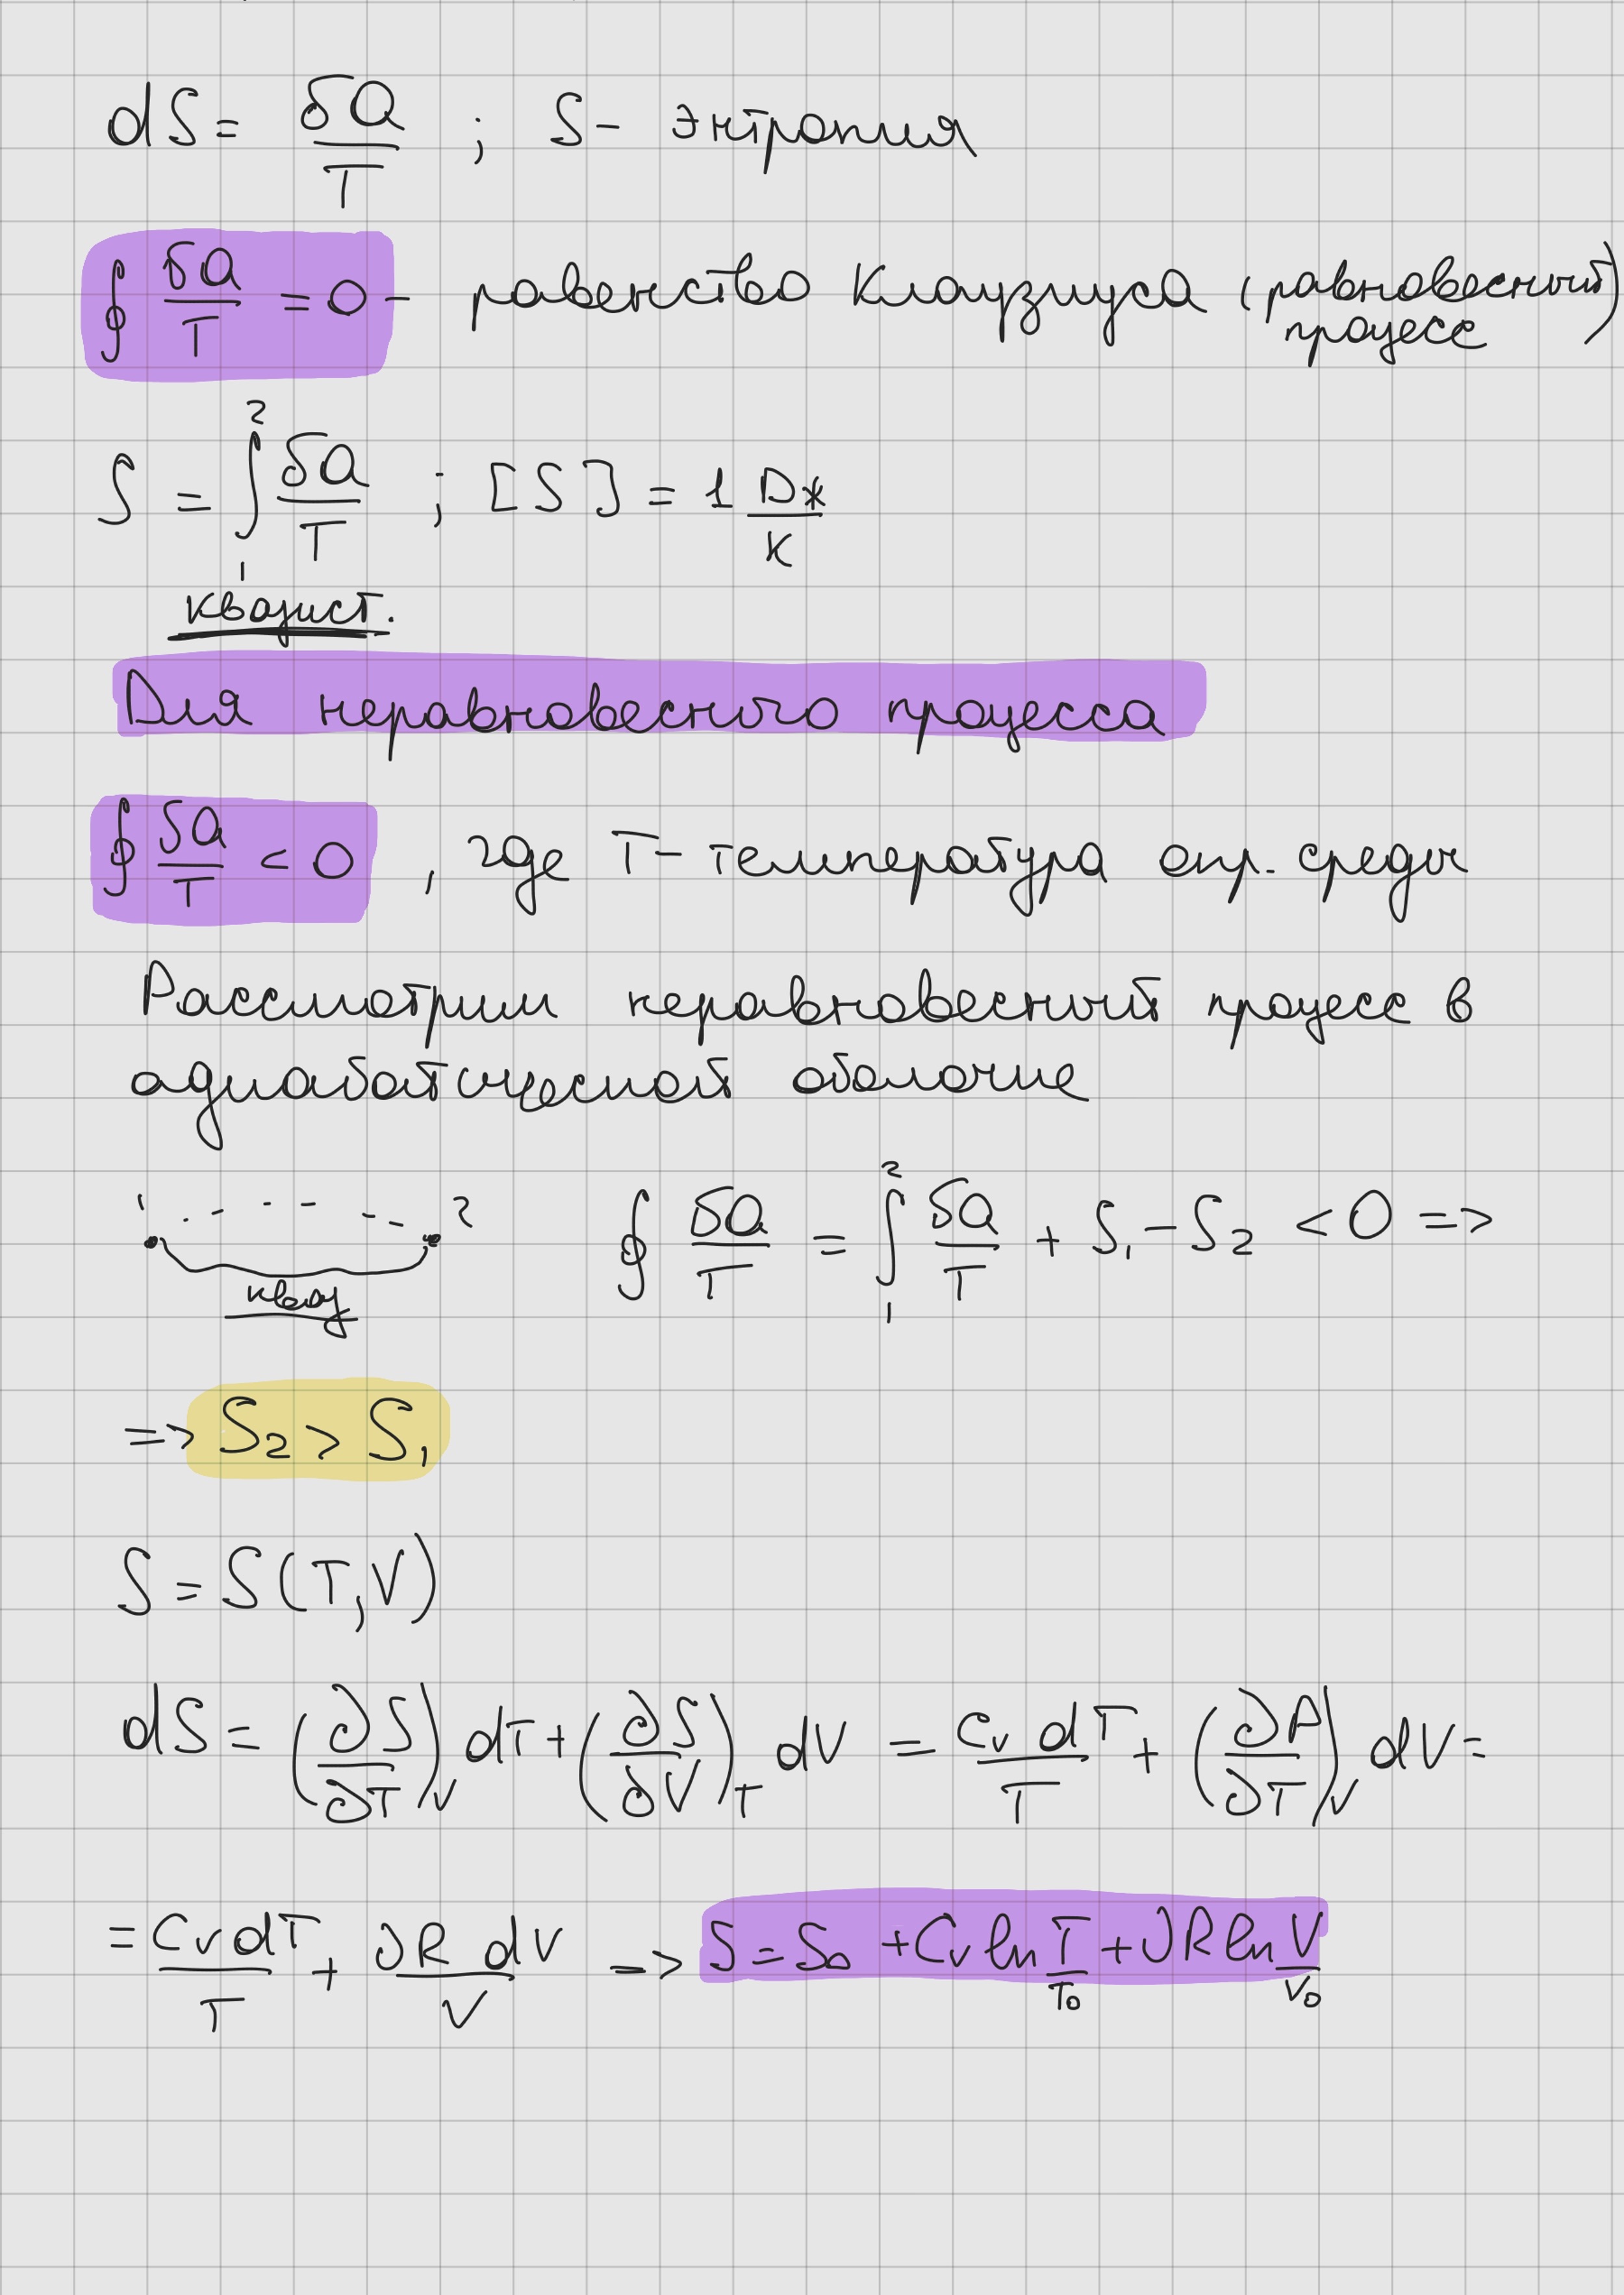 dS = δQ/T ; S - энтропия
∮ δQ/T = 0 - равенство Клаузиуса (равновесный процесс)
S = ∫₁² δQ/T ; [S] = 1 Дж/К
квазист.
Для неравновесного процесса
∮ δQ/T < 0 , где T - температура окр. среды
Рассмотрим неравновесный процесс в
адиабатической оболочке
1 2 ∮ δQ/T = ∫₁² δQ/T + S₁ - S₂ < 0 =>
кваз
=> S₂ > S₁
S = S(T,V)
dS = (∂S/∂T)_V dT + (∂S/∂V)_T dV = C_V dT/T + (∂P/∂T)_V dV =
= C_V dT/T + νR dV/V => S = S₀ + C_V ln T/T₀ + νR ln V/V₀